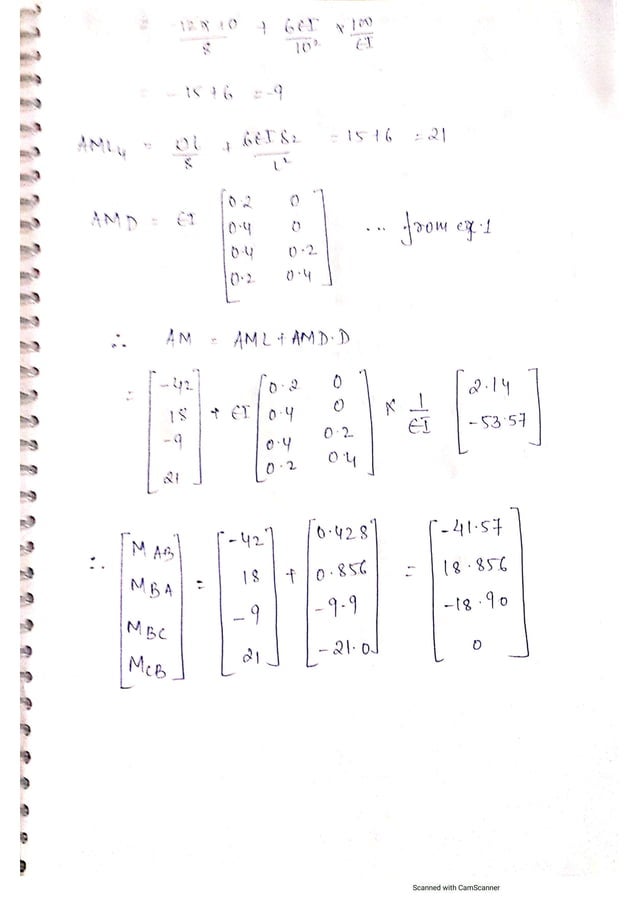 = -12×10/8 + 6EI/10² × 100/EI
= -15+6 = -9
AML4 = WL/8 + 6EIδ2/L² = 15+6 = 21
AMD = EI [0.2 0
0.4 0
0.4 0.2
0.2 0.4] ... from eg.1
∴ AM = AML + AMD.D
= [-42
18
-9
21] + EI [0.2 0
0.4 0
0.4 0.2
0.2 0.4] × 1/EI [2.14
-53.57]
∴ [MAB
MBA
MBC
MCB] = [-42
18
-9
21] + [0.428
0.856
-9.9
-21.0] = [-41.57
18.856
-18.90
0]
Scanned with CamScanner